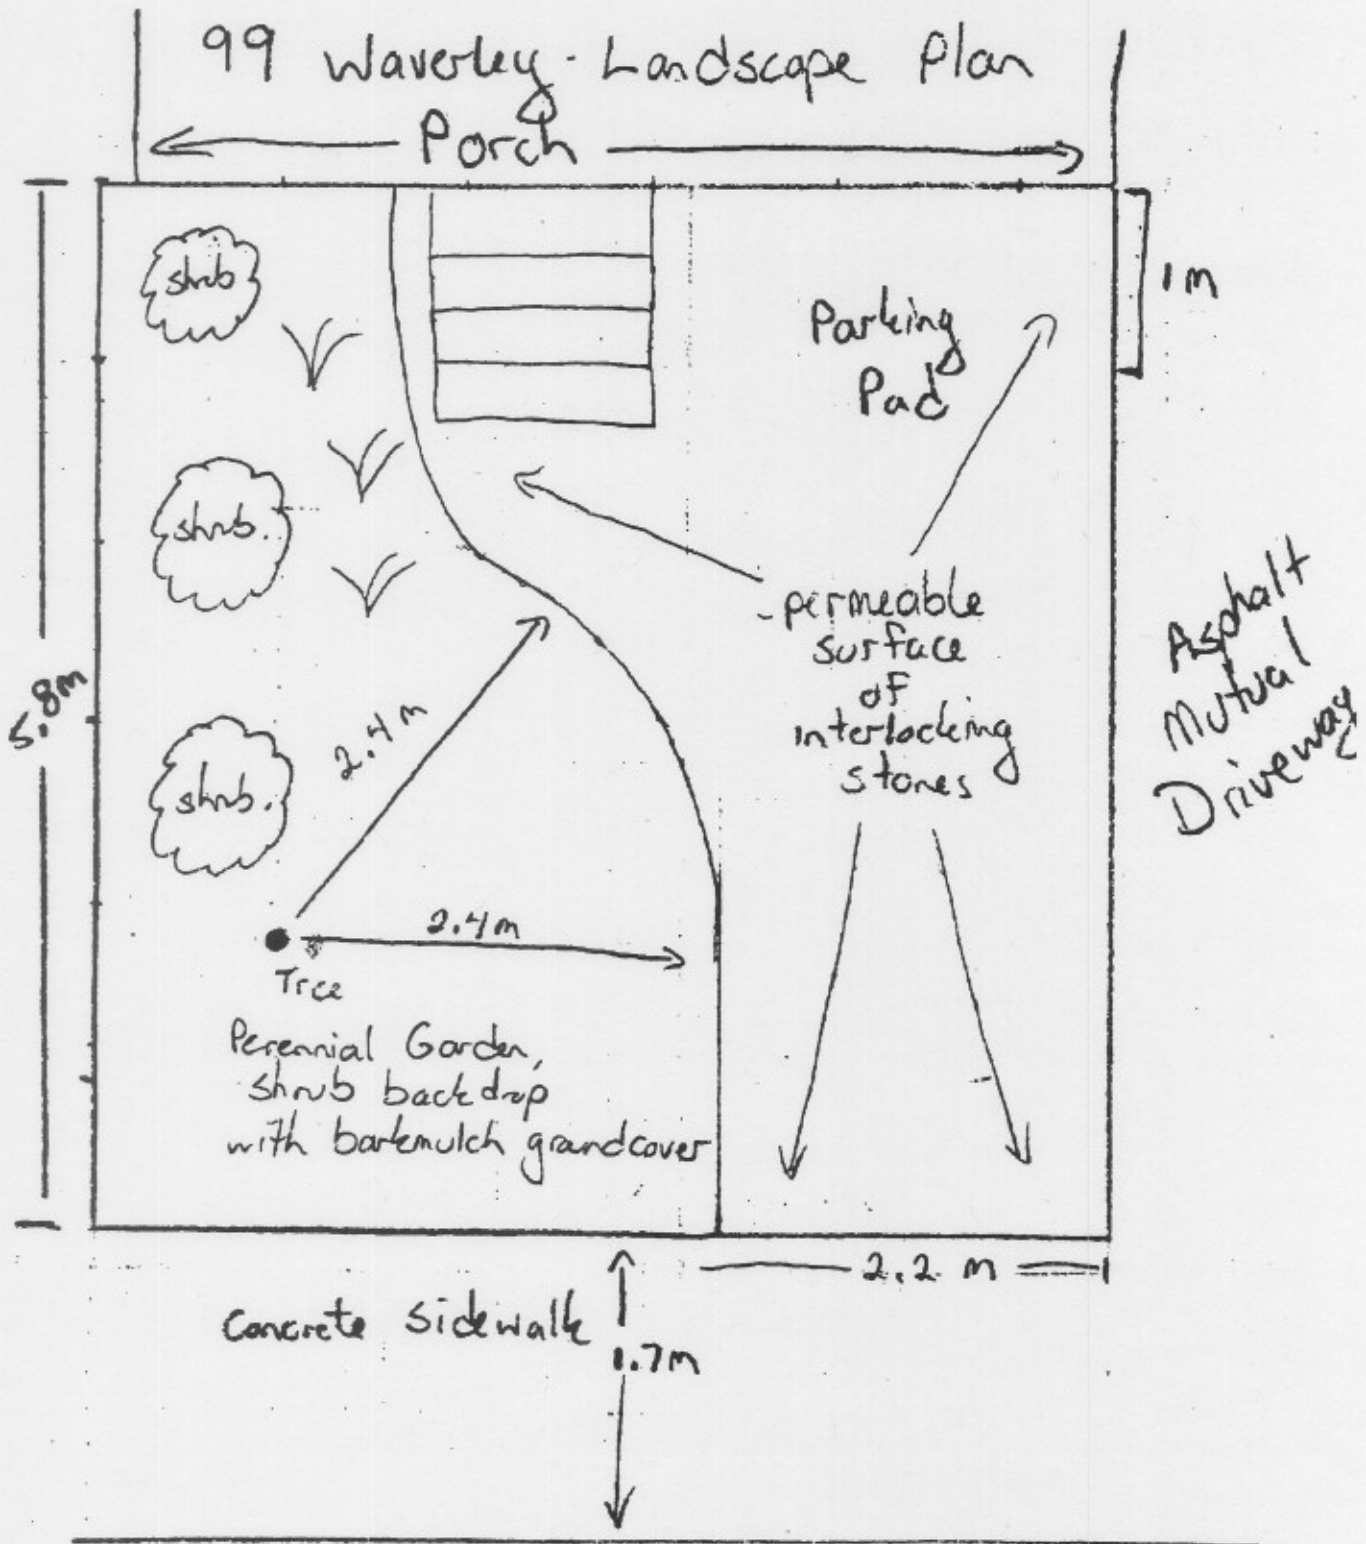 99 Waverley - Landscape Plan
Porch
shrub
1m
Parking
Pad
shrub.
permeable
surface
of
interlocking
stones
Asphalt
Mutual
Driveway
5.8m
2.4m
shrub.
2.4m
Tree
Perennial Garden,
shrub backdrop
with barkmulch groundcover
2.2 m
Concrete Sidewalk
1.7m